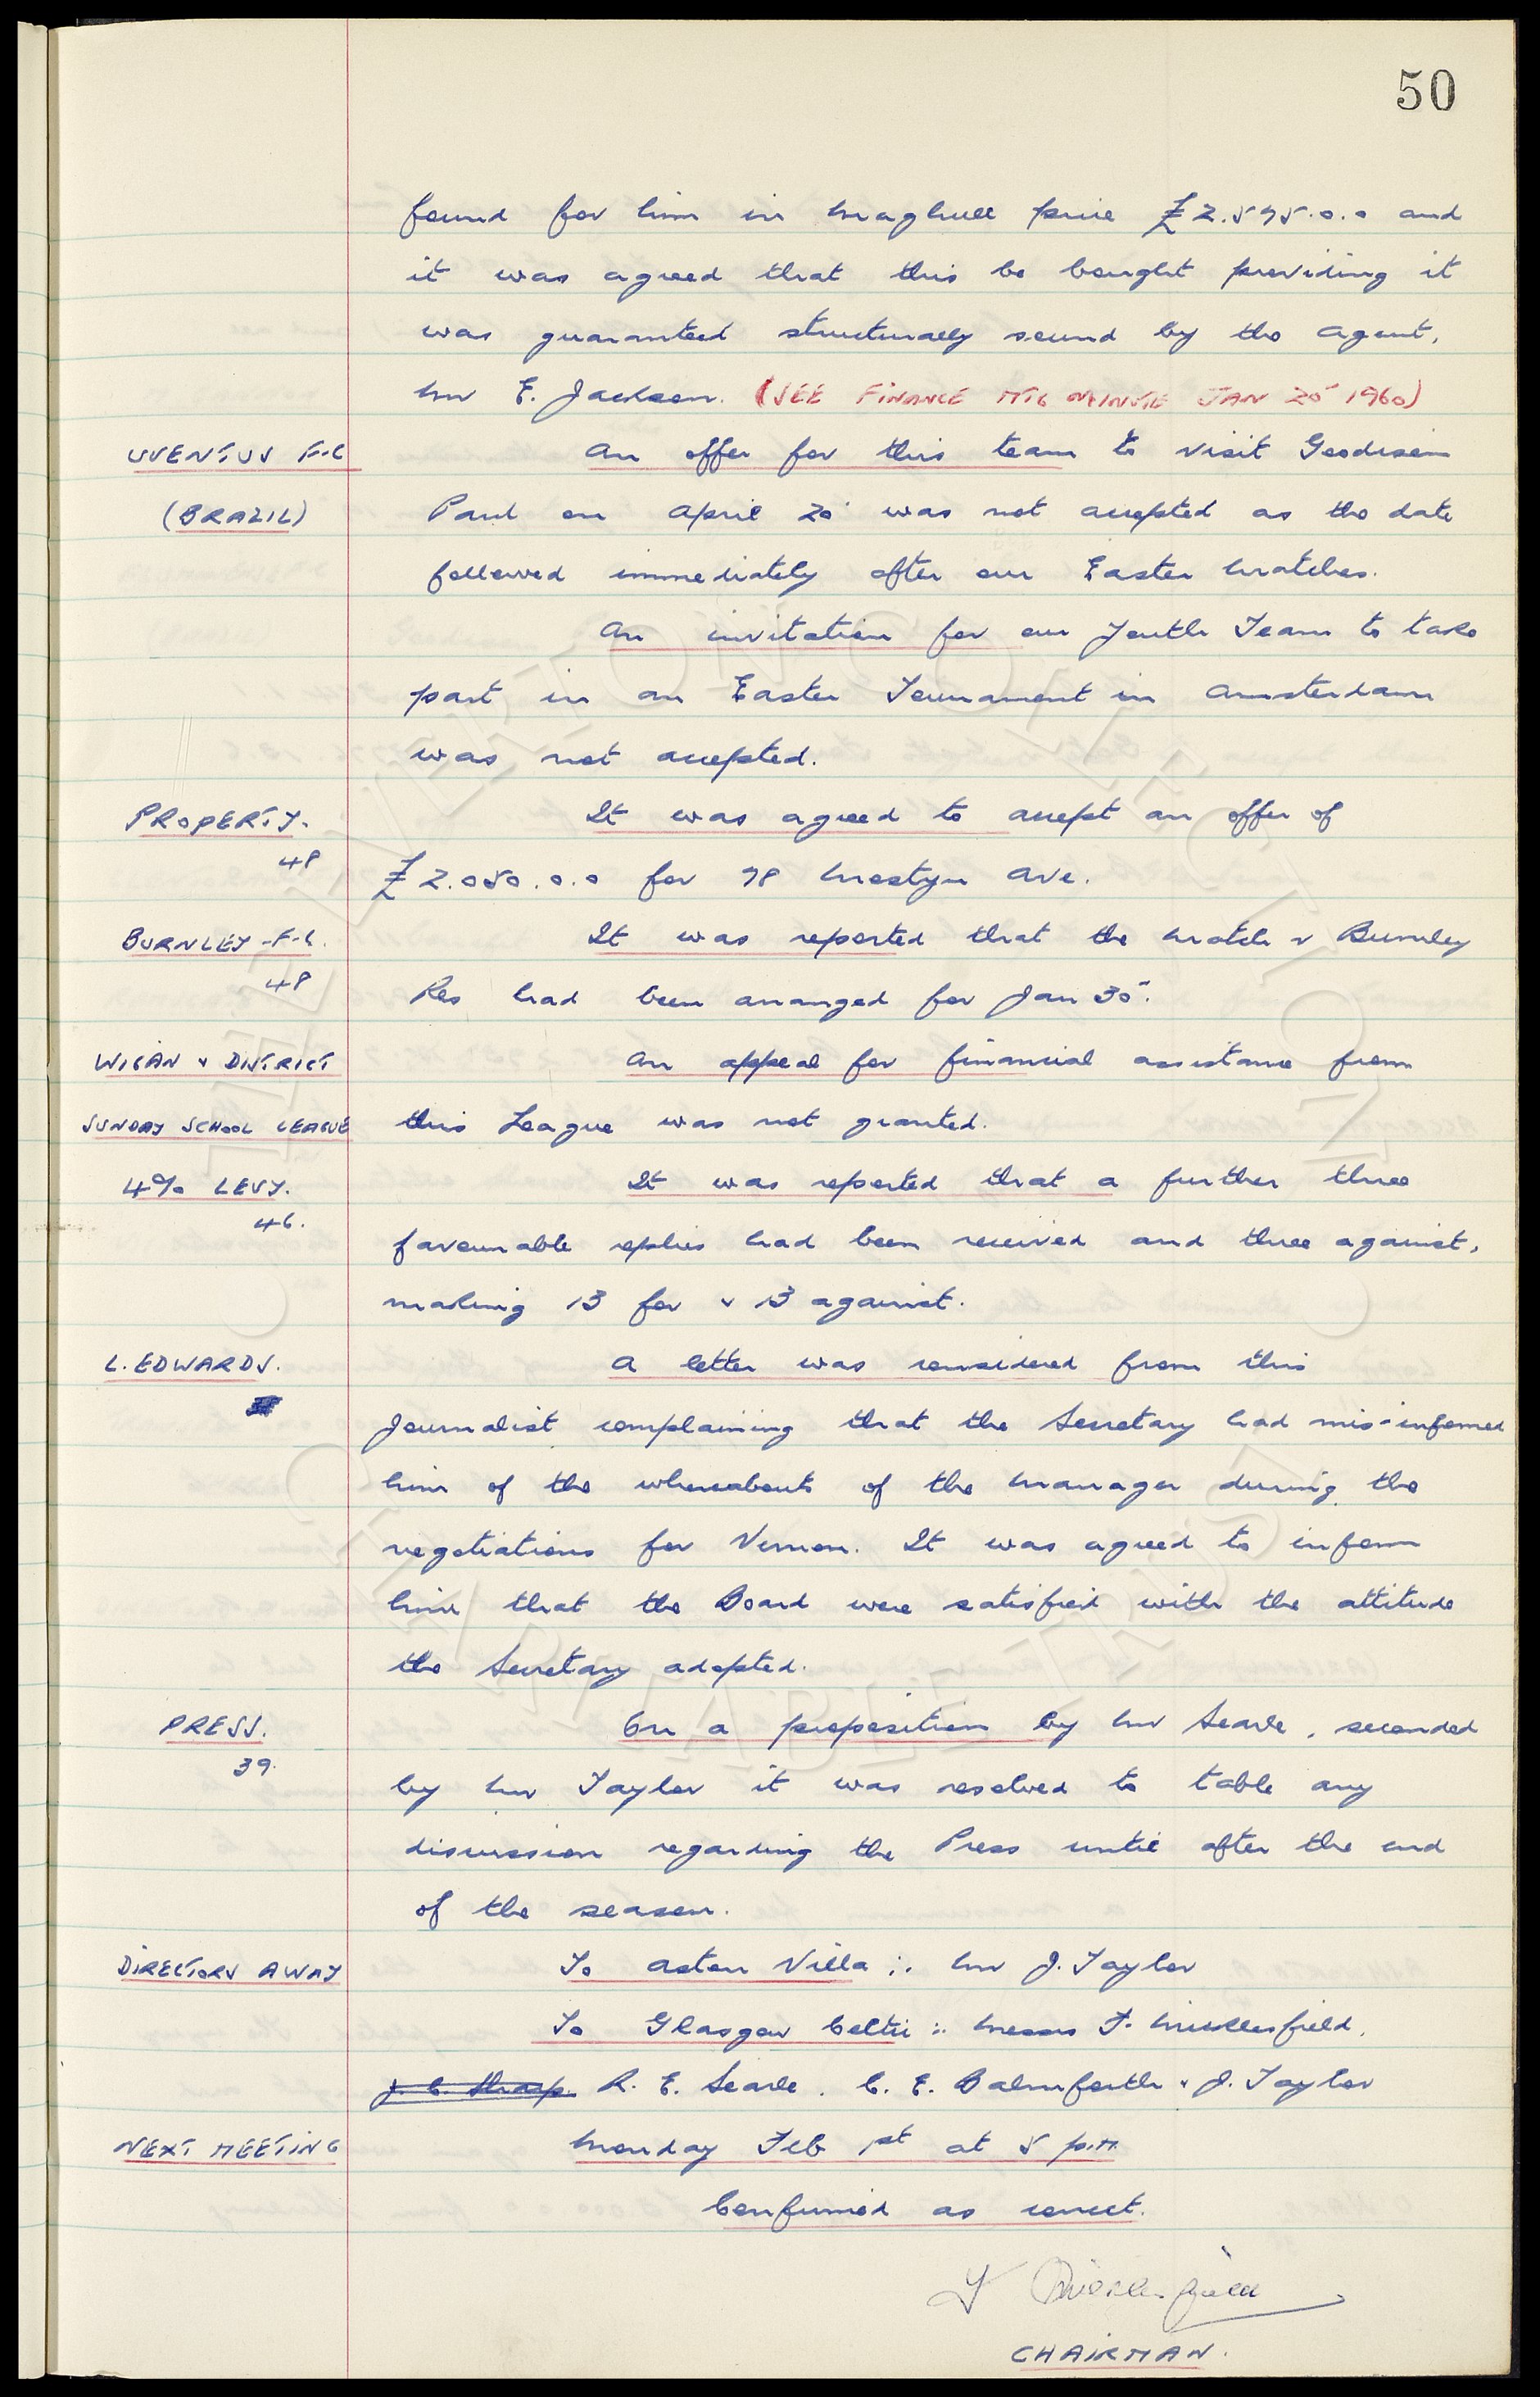 50
found for him in Maghull price £2.575.0.0 and
it was agreed that this be bought providing it
was guaranteed structurally sound by the agent,
Mr E. Jackson. (SEE FINANCE MTG MINUTE JAN 25 1960)
UVENTUS F.C
An offer for this team to visit Goodison
(BRAZIL)
Park on April 20 was not accepted as the date
followed immediately after our Easter Matches.
An invitation for our Youth Team to take
part in an Easter Tournament in Amsterdam
was not accepted.
PROPERTY.
It was agreed to accept an offer of
48
£2.050.0.0 for 78 Mostyn Ave.
BURNLEY F.C.
It was reported that the Match v Burnley
48
Res had been arranged for Jan 30.
WIGAN & DISTRICT
An appeal for financial assistance from
SUNDAY SCHOOL LEAGUE
this League was not granted.
4% LEVY.
It was reported that a further three
46.
favourable replies had been received and three against,
making 13 for & 13 against.
L. EDWARDS.
A letter was considered from this
Journalist complaining that the Secretary had mis-informed
him of the whereabouts of the Manager during the
negotiations for Vernon. It was agreed to inform
him that the Board were satisfied with the attitude
the Secretary adopted.
PRESS.
On a proposition by Mr Searle, seconded
39.
by Mr Taylor it was resolved to table any
discussion regarding the Press until after the end
of the season.
DIRECTORS AWAY
To Aston Villa :. Mr J. Taylor
To Glasgow Celtic :. Messrs F. Micklesfield,
J. C. Sharp. R. E. Searle. C. E. Balmforth & J. Taylor
NEXT MEETING
Monday Feb 1st at 5 p.m.
Confirmed as correct.
F Micklesfield
CHAIRMAN.